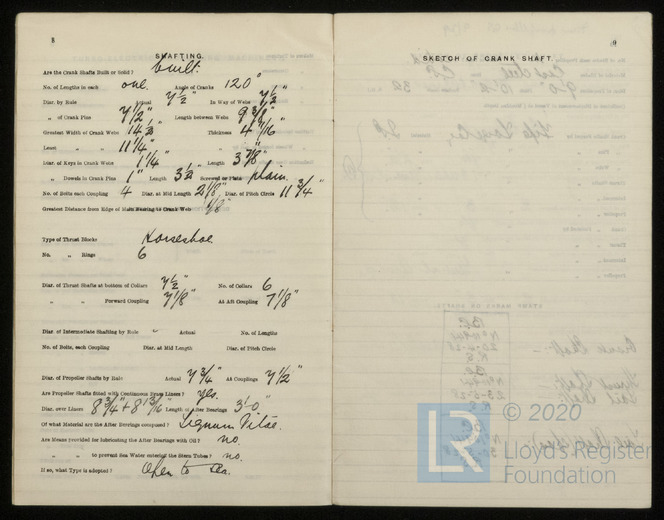 8
SHAFTING.
Are the Crank Shafts Built or Solid? built.
No. of Lengths in each one. Angle of Cranks 120°
Diar. by Rule Actual 7½" In Way of Webs 7½"
„ of Crank Pins 7½" Length between Webs 9⅜"
Greatest Width of Crank Webs 14½" Thickness 4 7/16"
Least „ „ „ 11¼" „ „
Diar. of Keys in Crank Webs 1¼" Length 3⅞"
„ Dowels in Crank Pins 1" Length 3½" Screwed or Plain plain.
No. of Bolts each Coupling 4 Diar. at Mid Length 2⅛" Diar. of Pitch Circle 11¾"
Greatest Distance from Edge of Main Bearing to Crank Web ⅛"
Type of Thrust Blocks Horseshoe
No. „ Rings 6
Diar. of Thrust Shafts at bottom of Collars 7½" No. of Collars 6
„ „ Forward Coupling 7⅛" At Aft Coupling 7⅛"
Diar. of Intermediate Shafting by Rule Actual No. of Lengths
No. of Bolts, each Coupling Diar. at Mid Length Diar. of Pitch Circle
Diar. of Propeller Shafts by Rule Actual 7¾" At Couplings 7½"
Are Propeller Shafts fitted with Continuous Brass Liners? yes.
Diar. over Liners 8¾" + 8 13/16" Length of After Bearings 3'-0"
Of what Material are the After Bearings composed? Lignum Vitae.
Are Means provided for lubricating the After Bearings with Oil? no.
„ „ to prevent Sea Water entering the Stern Tubes? no.
If so, what Type is adopted? Open to sea.
9
SKETCH OF CRANK SHAFT.
© 2020
LR
Lloyd's Register
Foundation